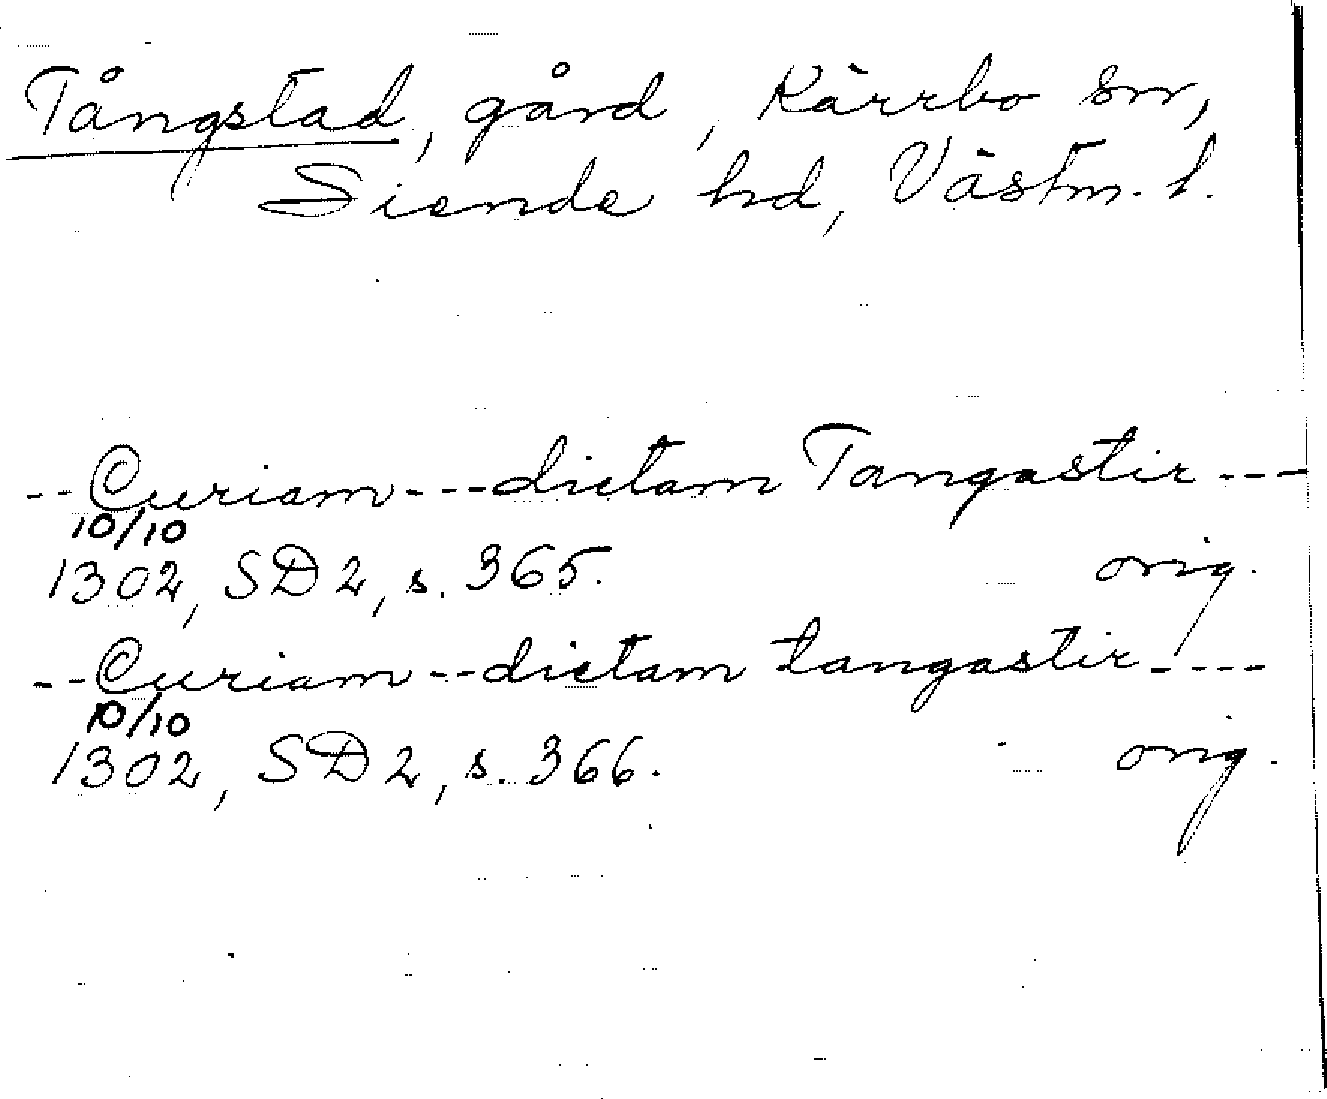 Tångstad, gård, Kärrbo sn,
Siende hd, Västm. l.
--Curiam---dictam Tangastir---
10/10
1302, SD2, s. 365. orig.
--Curiam--dictam tangastir----
10/10
1302, SD2, s. 366. orig.